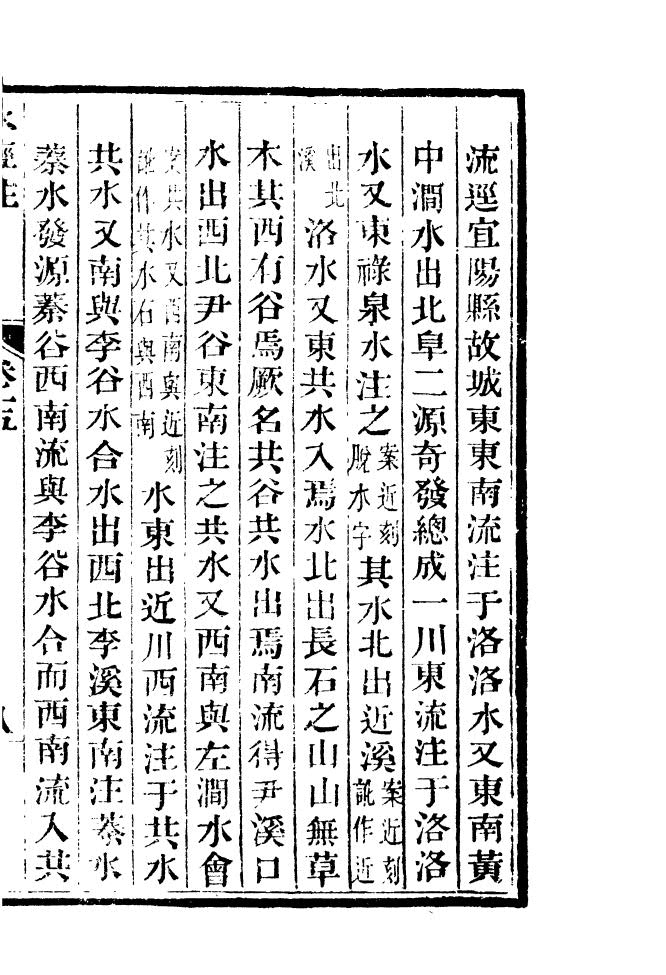 流逕宜陽縣故城東東南流注于洛洛水又東南黃
中澗水出北阜二源奇發總成一川東流注于洛洛
水又東祿泉水注之案近刻脫水字其水北出近溪案近刻訛作近
出北溪洛水又東共水入焉水北出長石之山山無草
木其西有谷焉厥名共谷共水出焉南流得尹溪口
水出西北尹谷東南注之共水又西南與左澗水會
案共水又西南與近刻訛作其水石與西南水東出近川西流注于共水
共水又南與李谷水合水出西北李溪東南注蓁水
蓁水發源蓁谷西南流與李谷水合而西南流入共
水經注 卷十五 八